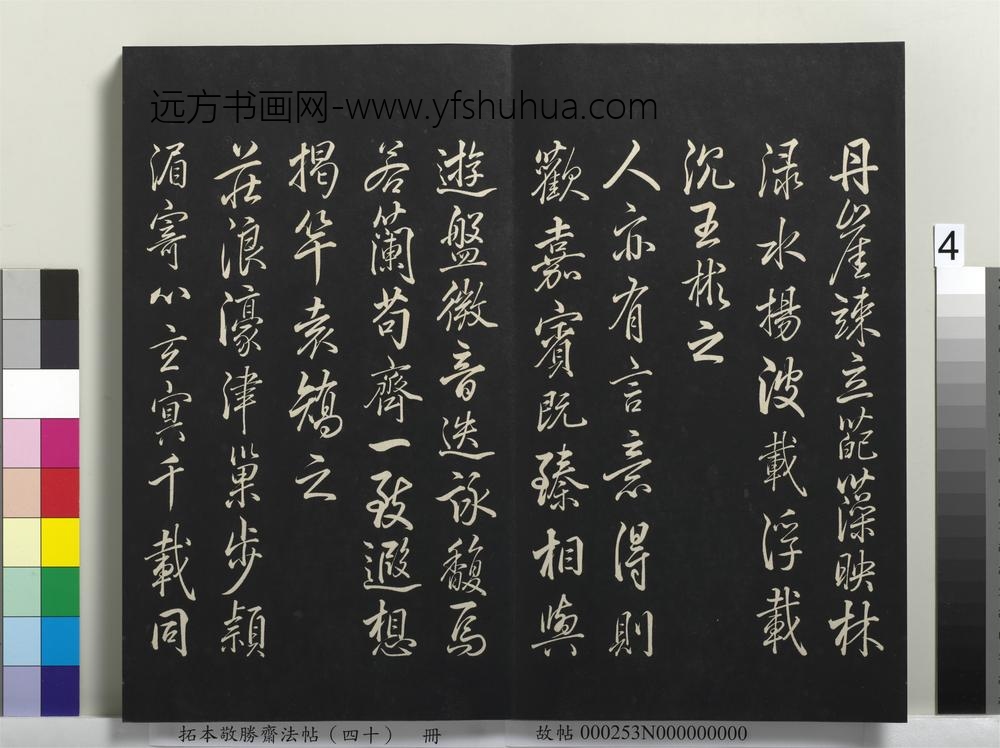 远方书画网-www.yfshuhua.com
丹崖竦立葩藻映林
渌水揚波載浮載
沉王彬之
人亦有言意得則
歡嘉賓既臻相與
遊盤微音迭詠馥焉
若蘭苟齊一致遐想
揭竿袁嶠之
莊浪濠津巢步潁
湄寄心玄冥千載同
4
拓本敬勝齋法帖（四十） 冊
故帖 000253N000000000